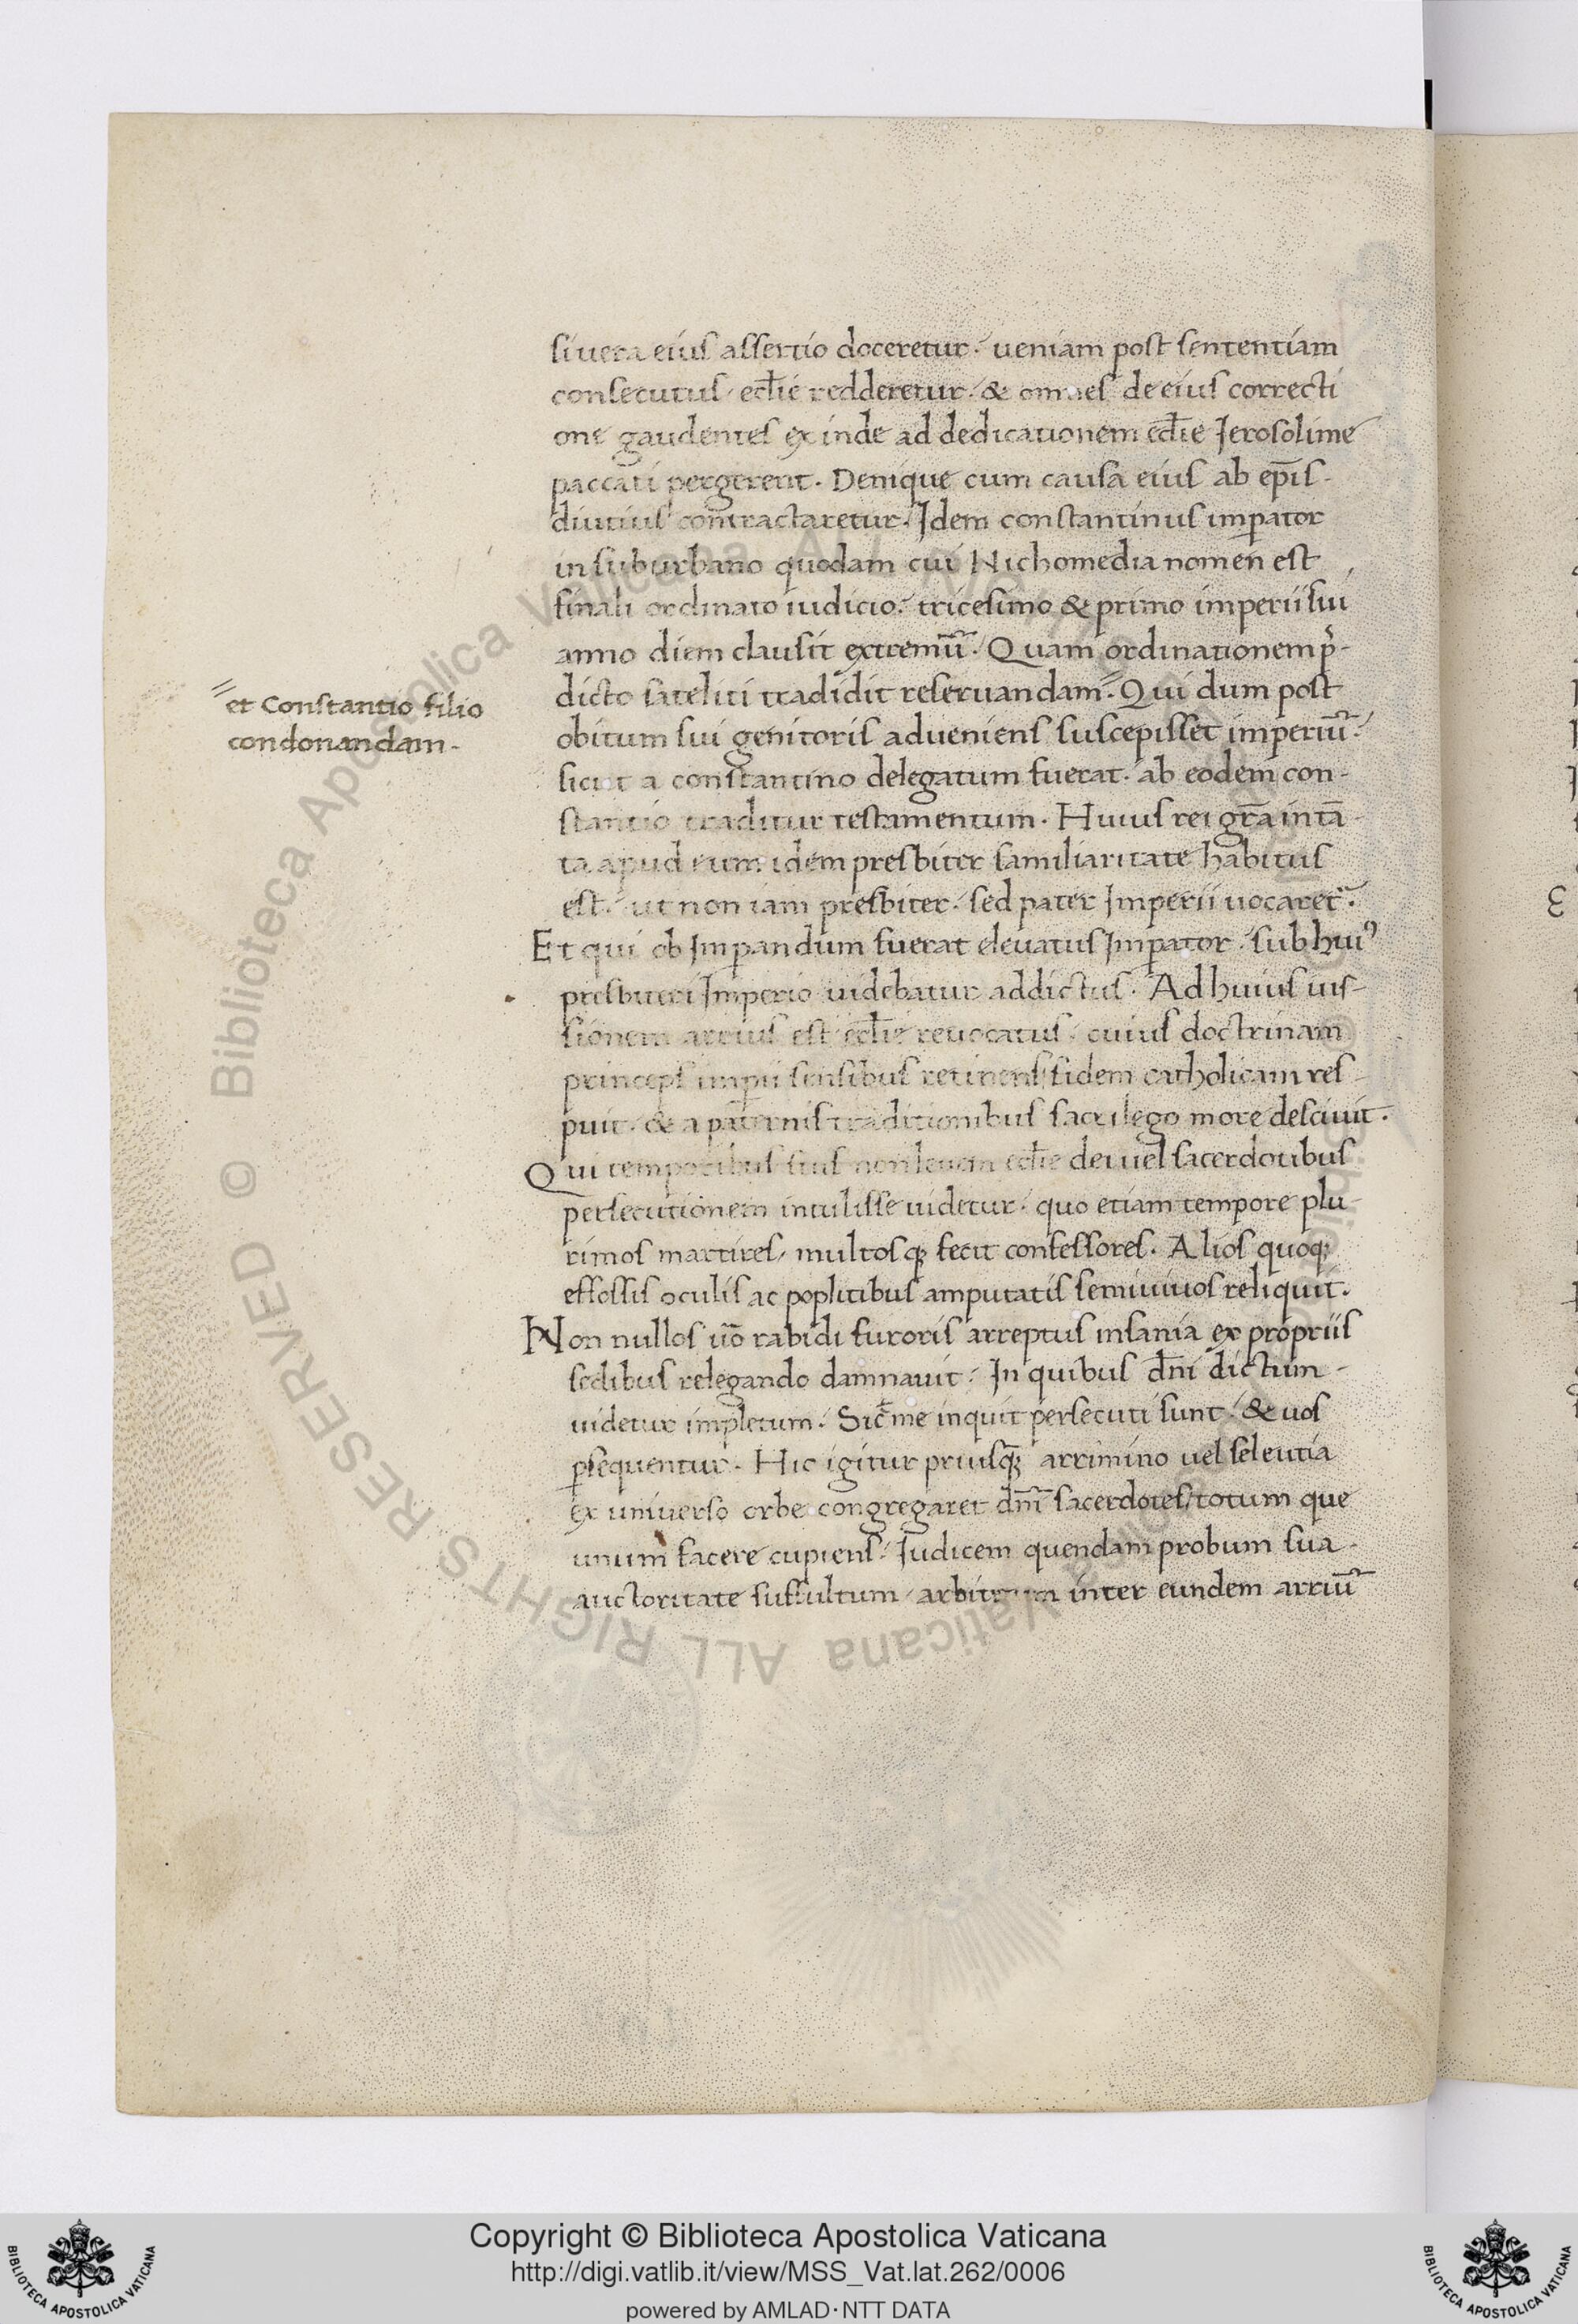 si uera eius assertio doceretur. ueniam post sententiam
consecutus. eccl̄ie redderetur. & omnes de eius correcti
one gaudentes ex inde ad dedicationem eccl̄ie Jerosolime
paccati pergerent. Denique cum causa eius ab ep̄is-
diutius contractaretur. Jdem constantinus imꝑator
in suburbano quodam cui Nichomedia nomen est
finali ordinato iudicio. tricesimo & primo imperii sui
anno diem clausit extremū. Quam ordinationem p̄-
dicto sateliti tradidit reseruandam. Qui dum post
et Constantio filio
condonandam-
obitum sui genitoris adueniens suscepisset imperiū.
sicut a constantino delegatum fuerat. ab eodem con-
stantio traditur testamentum. Huius rei gr̄a in tā-
ta apud eum idem presbiter familiaritate habitus
est. ut non iam presbiter. sed pater Jmperii uocaret᷑.
Et qui ob Jmꝑandum fuerat eleuatus Jmꝑator. sub huiꝰ
presbiteri Jmperio uidebatur addictus. Ad huius iuis-
sionem arrius est eccl̄ie reuocatus. cuius doctrinam
princeps impii sensibus retinens fidem catholicam res-
puit. & a paternis traditionibus sacrilego more desciuit.
Qui temporibus suis non leuem eccl̄ie dei uel sacerdotibus
persecutionem intulisse uidetur. quo etiam tempore plu-
rimos martires, multosqꝫ fecit confessores. Alios quoqꝫ
effossis oculis ac poplitibus amputatis semiuiuos reliquit.
Non nullos ūo rabidi furoris arreptus insania ex propriis
sedibus relegando damnauit. In quibus dn̄i dictum-
uidetur impletum. Sic̄ me inquit persecuti sunt. & uos
ꝑsequentur. Hic igitur priusqꝫ̄ arrimino uel seleutia
ex uniuerso orbe congregaret dn̄i sacerdotes, totum que
unum facere cupiens. Judicem quendam probum sua-
auctoritate suffultum. arbitrum inter eundem arriū
© Biblioteca Apostolica Vaticana ALL RIGHTS RESERVED
Copyright © Biblioteca Apostolica Vaticana
http://digi.vatlib.it/view/MSS_Vat.lat.262/0006
powered by AMLAD·NTT DATA
BIBLIOTECA APOSTOLICA VATICANA
BIBLIOTECA APOSTOLICA VATICANA